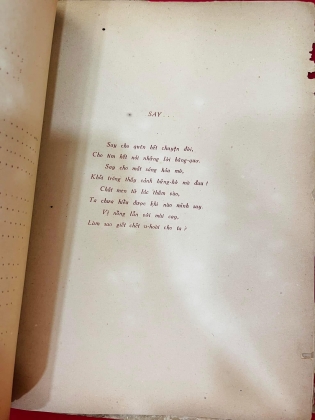 SAY
Say cho quên hết chuyện đời,
Cho tim hết nói những lời băng-quơ.
Say cho mắt sáng hóa mờ,
Khỏi trông thấy cảnh bằng-hồ mà đau!
Chất men từ lúc thấm vào,
Ta chưa hiểu được khi nào mình say.
Vị nồng lẫn với mùi cay,
Làm sao giết chết u-hoài cho ta?